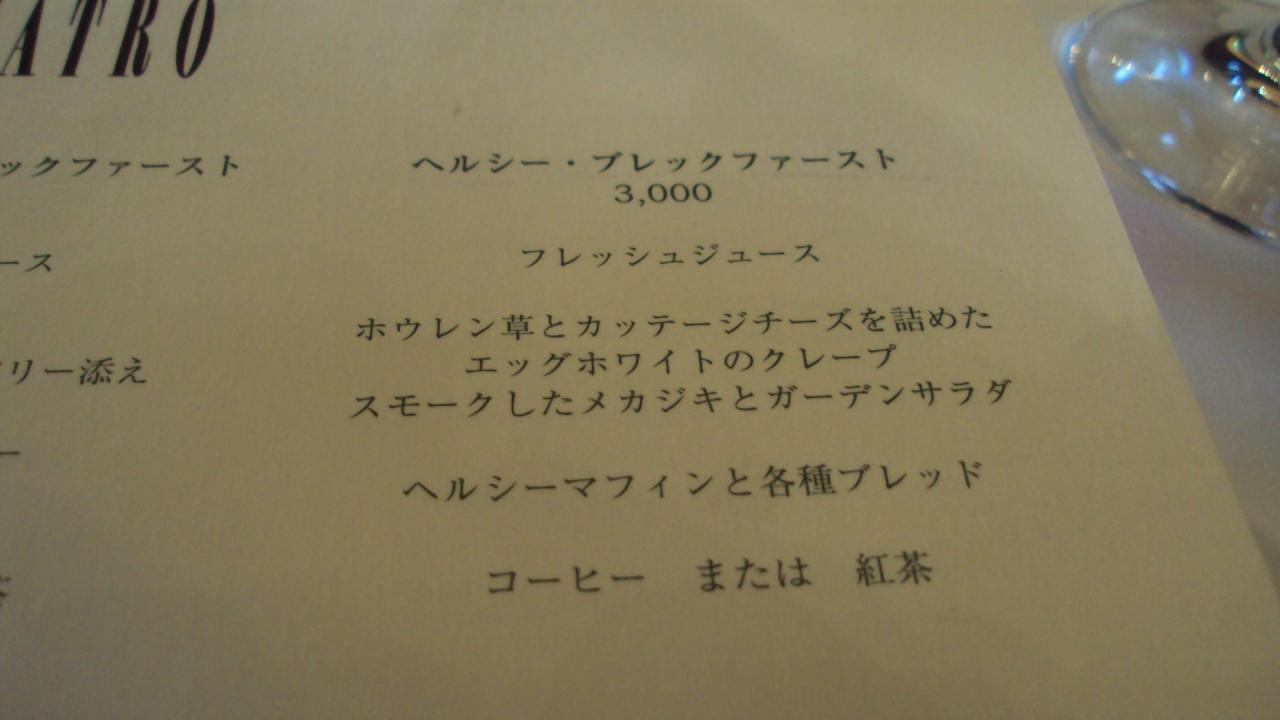 ATRO
ックファースト
ース
リー添え
ー
ヘルシー・ブレックファースト
3,000
フレッシュジュース
ホウレン草とカッテージチーズを詰めた
エッグホワイトのクレープ
スモークしたメカジキとガーデンサラダ
ヘルシーマフィンと各種ブレッド
コーヒー　または　紅茶